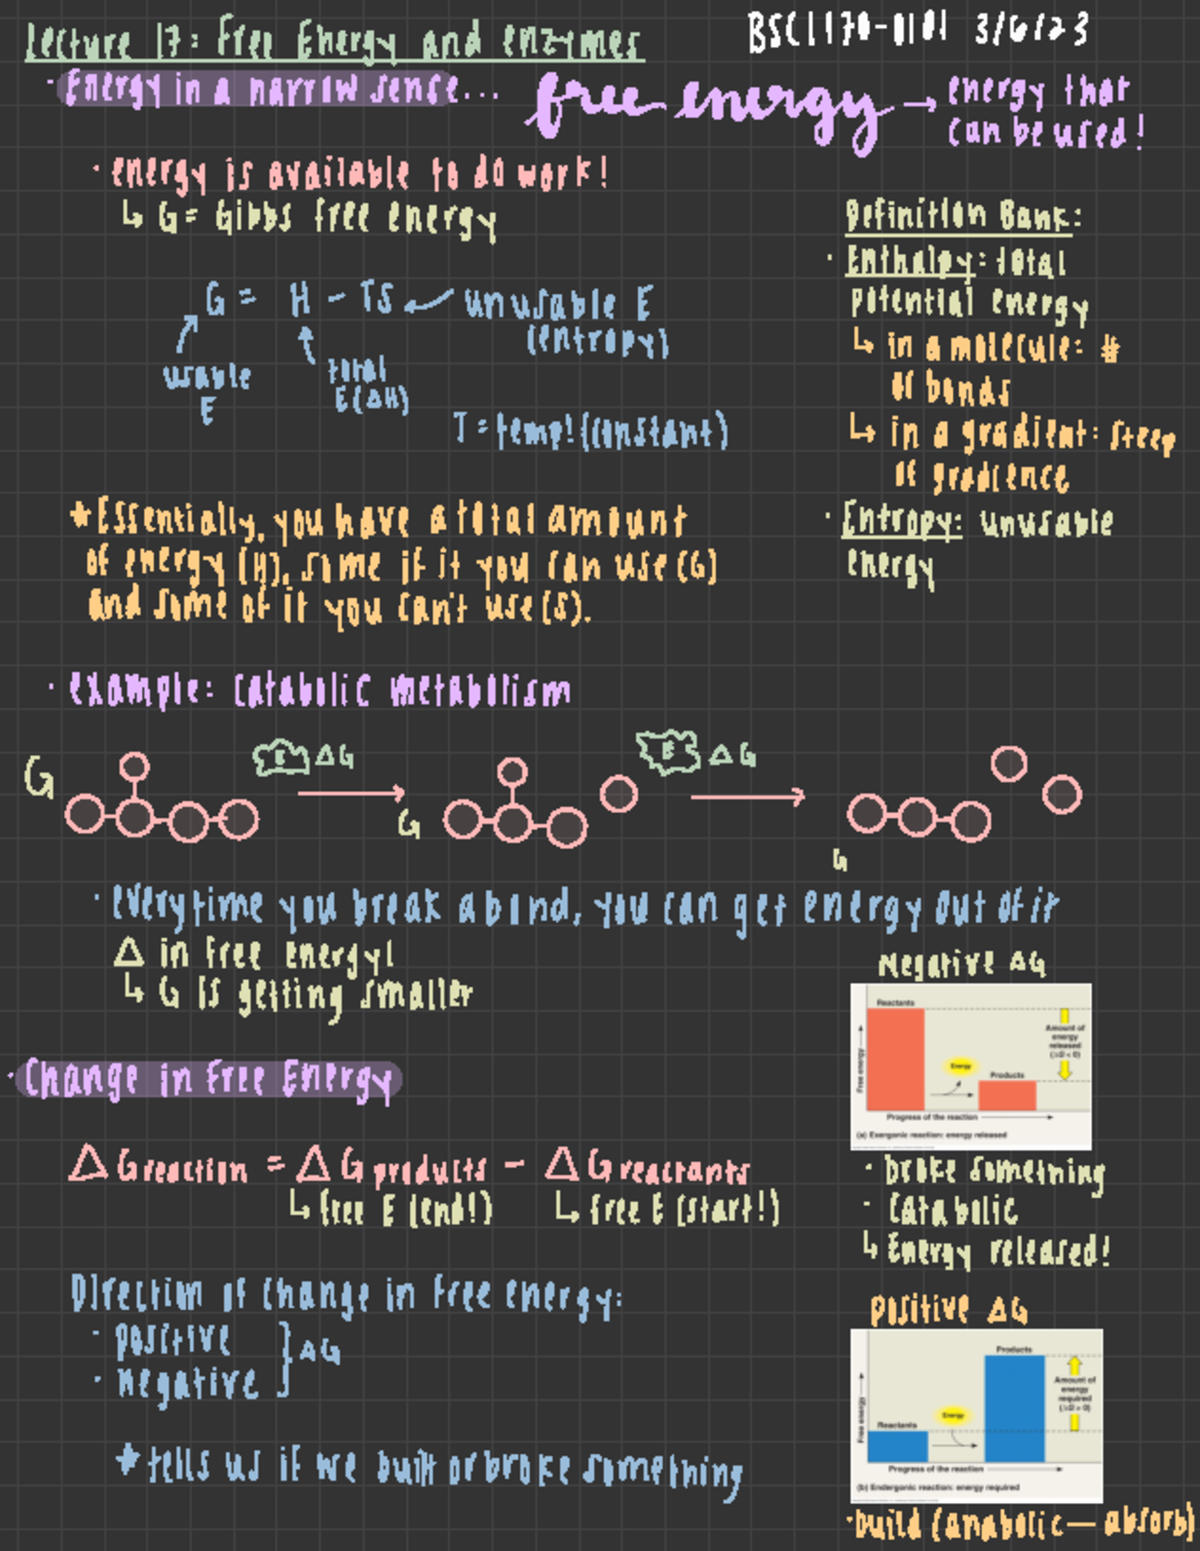 Lecture 17: Free Energy and enzymes
BSC1170-0101 3/6/23
· Energy in a narrow sense...
free energy → energy that
can be used!
· energy is available to do work!
↳ G = Gibbs free energy
G = H - TS
unusable E
(entropy)
usable
E
total
E(ΔH)
T = temp! (constant)
Definition Bank:
· Enthalpy: total
potential energy
↳ in a molecule: #
of bonds
↳ in a gradient: steep
of gradience
· Entropy: unusable
energy
*Essentially, you have a total amount
of energy (H), some if it you can use (G)
and some of it you can't use (S).
· example: catabolic metabolism
G
E ΔG
G
E ΔG
G
· everytime you break a bond, you can get energy out of it
Δ in free energy!
↳ G is getting smaller
Negative ΔG
Reactants
Free energy
Energy
Products
Amount of
energy
released
(ΔG < 0)
Progress of the reaction
(a) Exergonic reaction: energy released
· broke something
· catabolic
↳ Energy released!
· Change in Free Energy
ΔG reaction = ΔG products - ΔG reactants
↳ free E (end!)
↳ free E (start!)
Direction of change in free energy:
· positive
· negative
} ΔG
* tells us if we built or broke something
positive ΔG
Products
Free energy
Reactants
Energy
Amount of
energy
required
(ΔG > 0)
Progress of the reaction
(b) Endergonic reaction: energy required
· build (anabolic — absorb)